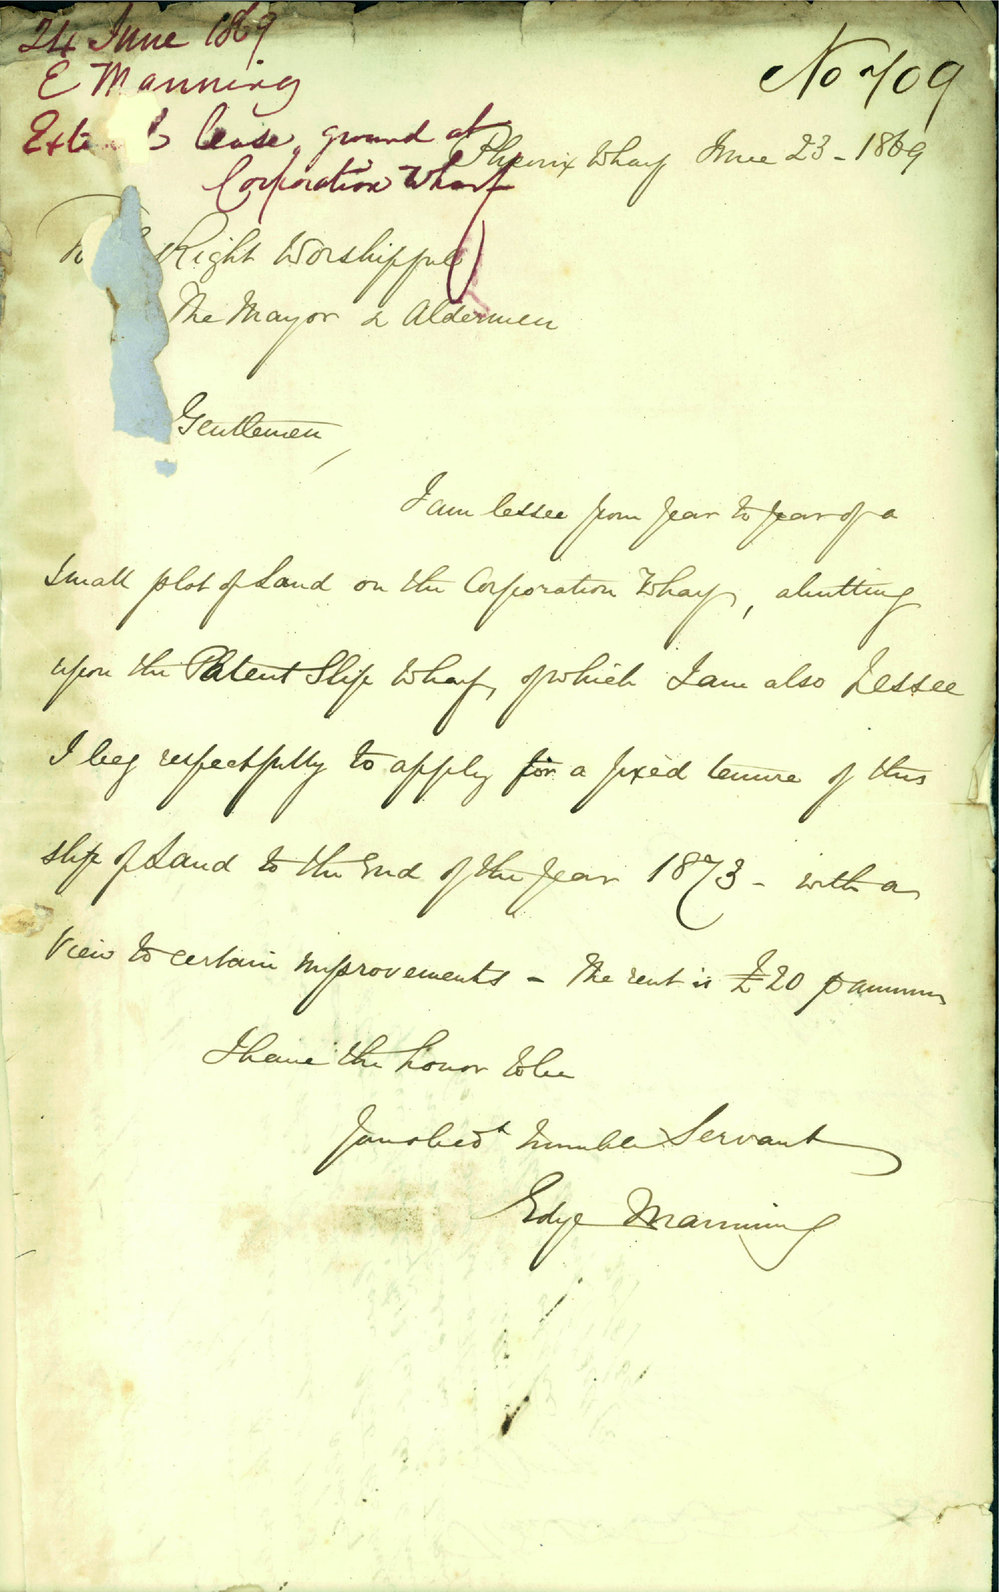 24 June 1869
E Manning
No 709
Exte lease, ground at
Corporation Wharf
Phoenix Wharf June 23 - 1869
Right Worshipful
The Mayor & Aldermen
Gentlemen,
I am lessee from year to year of a
small plot of Land on the Corporation Wharf, abutting
upon the Patent Slip Wharf, of which I am also Lessee
I beg respectfully to apply for a fixed tenure of this
slip of Land to the End of the Year 1873 - with a
View to certain improvements - The rent is £20 p annum
I have the honor to be
Your obedt humble Servant
Edye Manning